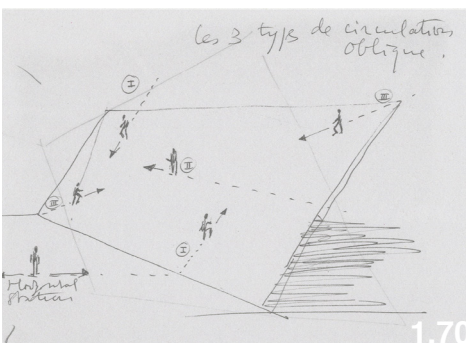 Les 3 types de circulation
oblique.
I
III
II
III
I
Horizontal
Station
1.70